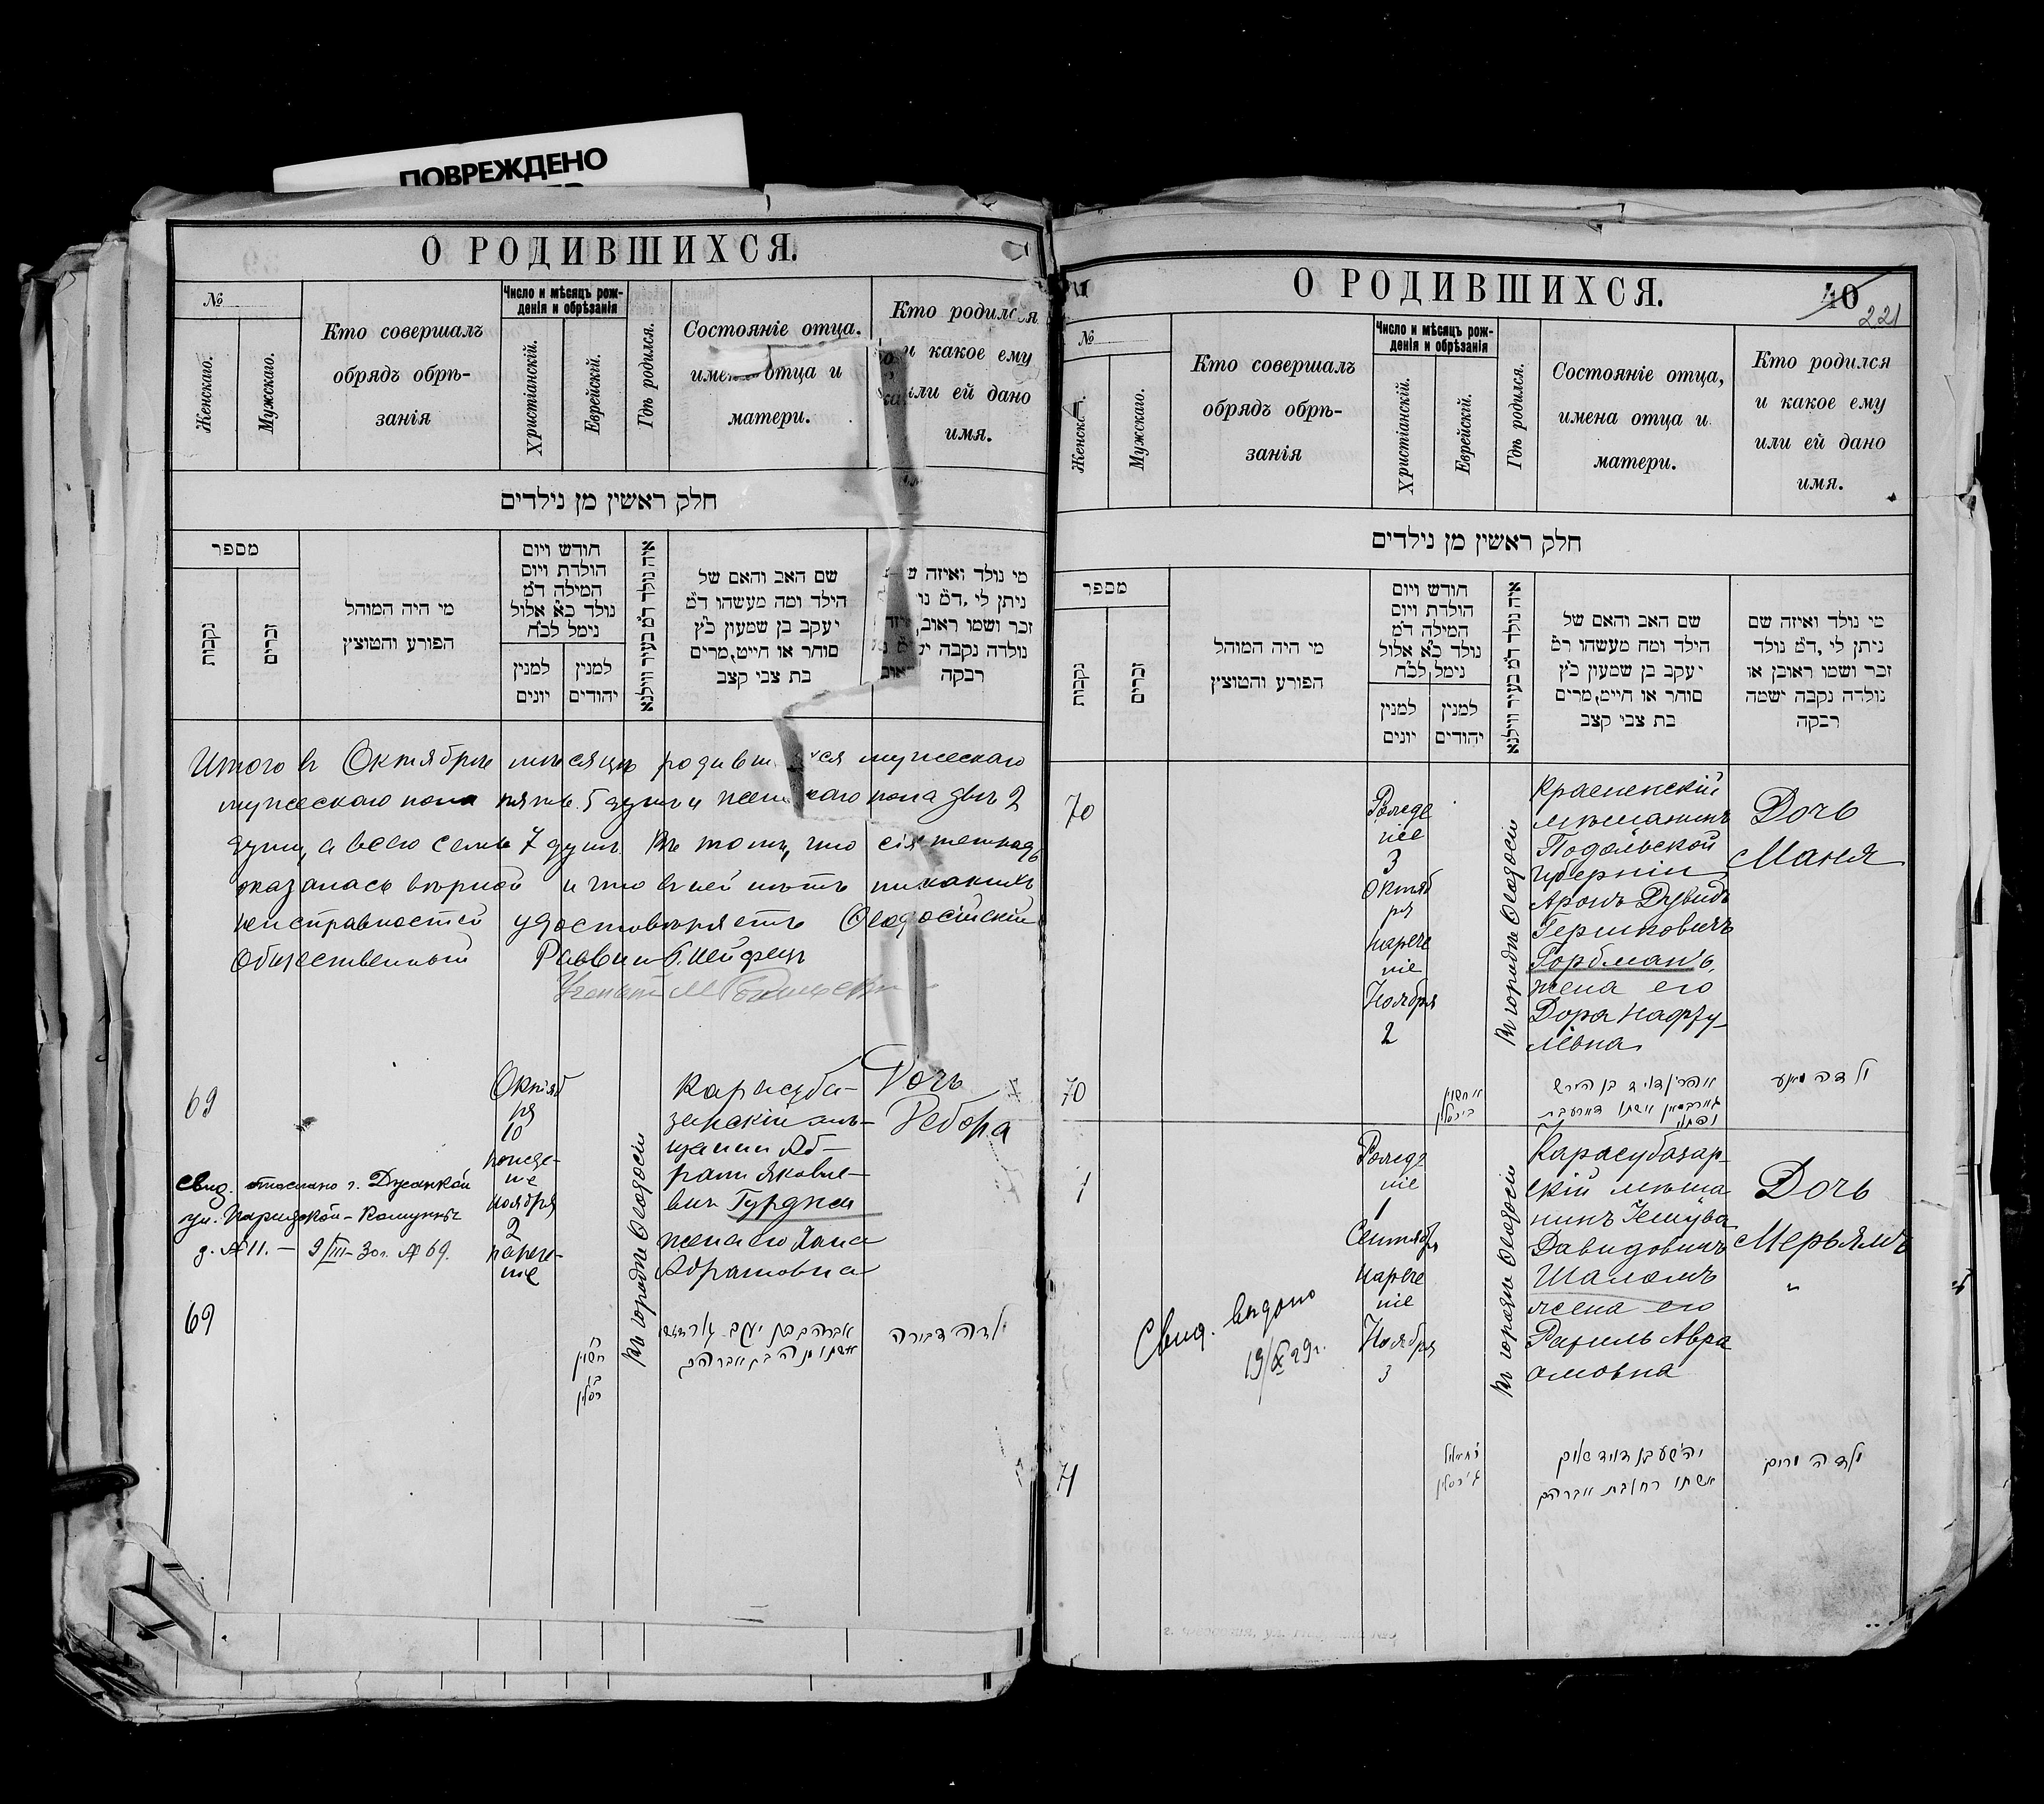 ПОВРЕЖДЕНО
О РОДИВШИХСЯ.
№
Женскаго.
Мужскаго.
Кто совершалъ
обрядъ обрѣ-
занія
Число и мѣсяцъ рож-
денія и обрѣзанія
Христіанскій.
Еврейскій.
Гдѣ родился.
Состояніе отца.
имена отца и
матери.
Кто родился
и какое ему
или ей дано
имя.
חלק ראשין מן נילדים
מספר
נקבות
זכרים
מי היה המוהל
הפורע והמוצץ
חודש ויום
הולדת ויום
המילה ד״מ
נולד כ״א אלול
נימל לכ״ח
למנין
יונים
למנין
יהודים
איה נולד ד״מ בעיר ווילנא
שם האב והאם של
הילד ומה מעשהו ד״מ
יעקב בן שמעון כ״ץ
סוחר או חייט, מרים
בת צבי קצב
מי נולד ואיזה
ניתן לי, ד״מ
זכר ושמו ראובן
נולדה נקבה
רבקה
Итого въ Октябрѣ мѣсяцѣ родившихся мужескаго
мужескаго пола пять 5 душъ и женскаго пола двѣ 2
души, а всего семь 7 душъ. Въ томъ, что сія тетрадь
оказалась вѣрной и что въ ней нѣтъ никакихъ
неисправностей удостовѣряетъ Ѳеодосійскій
Общественный Раввинъ Б. Хейфецъ
69
Октяб
ря
10
рожде-
ніе
ноября
2
нарече-
ніе
въ городѣ Ѳеодосіи
Карасуба-
зарскій мѣ-
щанинъ Аб-
рамъ Яковле-
вичъ Гурджи
жена его Хана
Абрамовна
Дочь
Дебора
Свид. отослано г. Джанкой
ул. Парижской-Комуны
д. № 11. — 9/III-30г. № 69.
69
ולדה דבורה
О РОДИВШИХСЯ.
40
221
№
Женскаго.
Мужскаго.
Кто совершалъ
обрядъ обрѣ-
занія
Число и мѣсяцъ рож-
денія и обрѣзанія
Христіанскій.
Еврейскій.
Гдѣ родился.
Состояніе отца,
имена отца и
матери.
Кто родился
и какое ему
или ей дано
имя.
חלק ראשין מן נילדים
מספר
נקבות
זכרים
מי היה המוהל
הפורע והמוצץ
חודש ויום
הולדת ויום
המילה ד״מ
נולד כ״א אלול
נימל לכ״ח
למנין
יונים
למנין
יהודים
איה נולד ד״מ בעיר ווילנא
שם האב והאם של
הילד ומה מעשהו ד״מ
יעקב בן שמעון כ״ץ
סוחר או חייט, מרים
בת צבי קצב
מי נולד ואיזה שם
ניתן לי, ד״מ נולד
זכר ושמו ראובן או
נולדה נקבה ישמה
רבקה
70
Рожде
ніе
3
Октяб
ря
нарече
ніе
Ноября
2
въ городѣ Ѳеодосіи
мѣщанинъ
Подольской
губерніи
Аронъ Дувидъ
Гершковичъ
Горбманъ,
жена его
Дора Нафту-
ліевна
Дочь
Маня
70
1
Рожде
ніе
1
Сентября
нарече
ніе
Ноября
3
въ городѣ Ѳеодосіи
Карасубазар-
скій мѣща
нинъ Іешува
Давидовичъ
Шаломъ
жена его
Рахиль Авра
амовна
Дочь
Мерьямъ
Свид. выдано
19/X 29г.
71
אשתו רחל בת אברהם
ולדה מרים